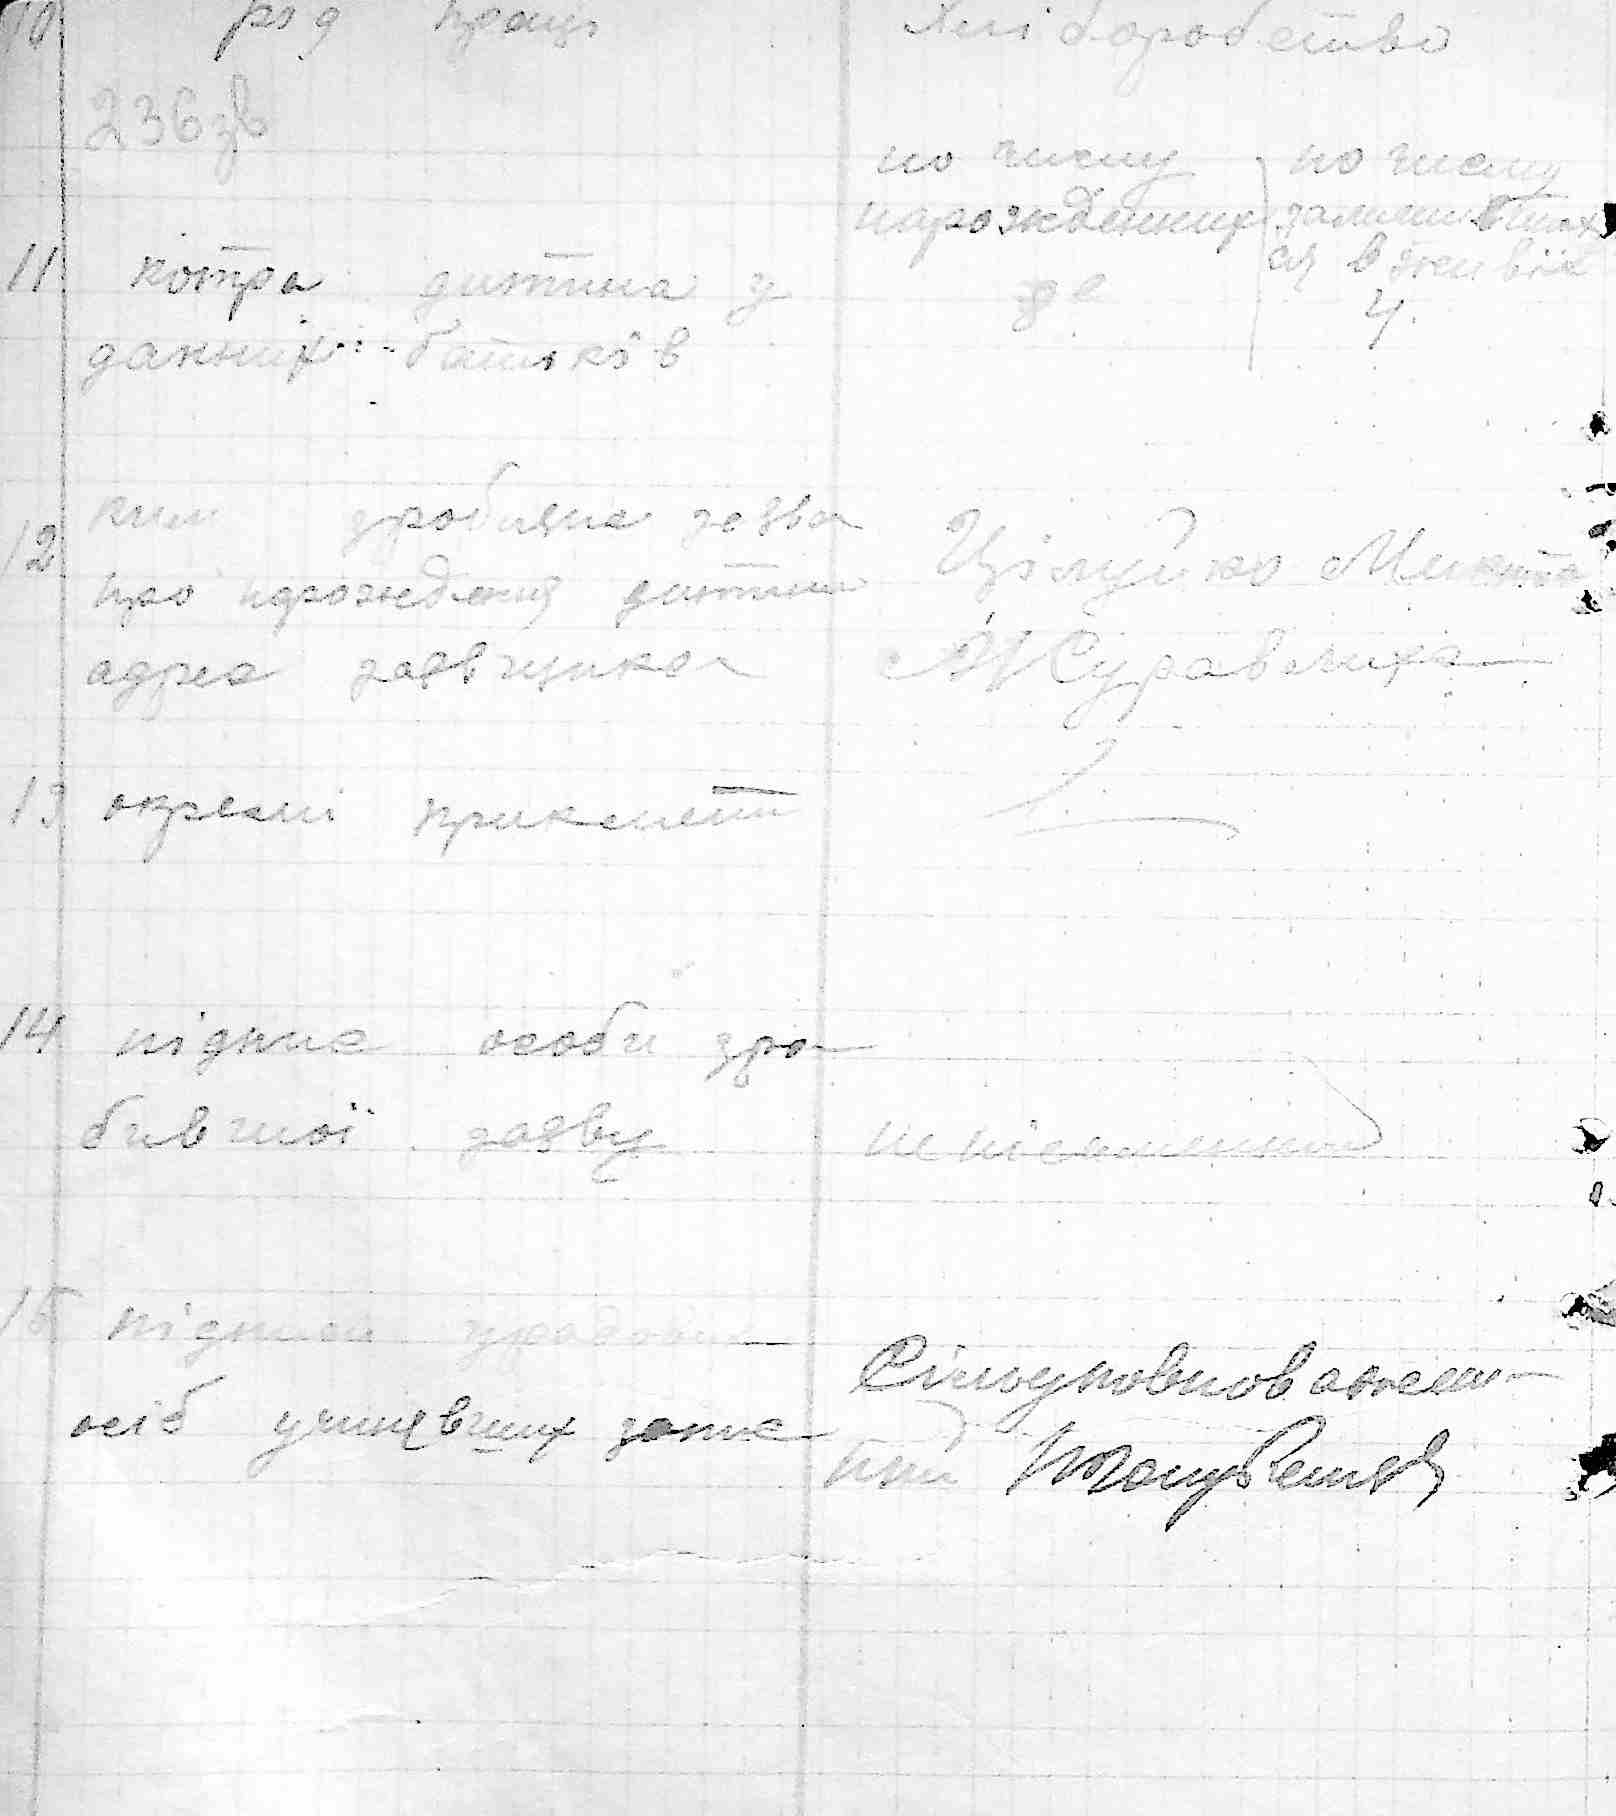 10 рід праці Хліборобство
236зв
по числу
нарожденних
по числу
залишивших
ся в живих
11 котра дитина у
данних батьків
4
12 ким зроблена заява
про нарождення дитини
адрес заявщика
Цілуйко Микита
Журавлиха
13 окремі прикмети
14 підпис особи зро
бившої заяву
неписьменний
15 підписи урядових
осіб учинивших запис
Сільуповноважен
ний